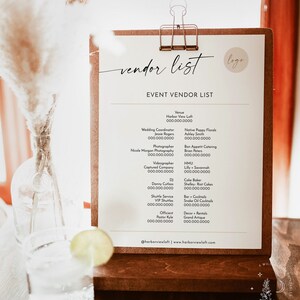 vendor list
logo
EVENT VENDOR LIST
Venue
Harbor View Loft
000.000.0000
Wedding Coordinator
Jessie Rogers
000.000.0000
Native Poppy Florals
Ashley Smith
000.000.0000
Photographer
Nicole Morgan Photography
000.000.0000
Bon Appetit Catering
Brian Peters
000.000.0000
Videographer
Captured Company
000.000.0000
HMU
Lilly + Savannah
000.000.0000
DJ
Danny Guthies
000.000.0000
Cake Baker
Shelley- Brat Cakes
000.000.0000
Shuttle Service
VIP Shuttles
000.000.0000
Bar + Cocktails
Snake Oil Cocktails
000.000.0000
Officiant
Pastor Kyle
000.000.0000
Decor + Rentals
Grand Antique
000.000.0000
@harborviewloft | www.harborviewloft.com